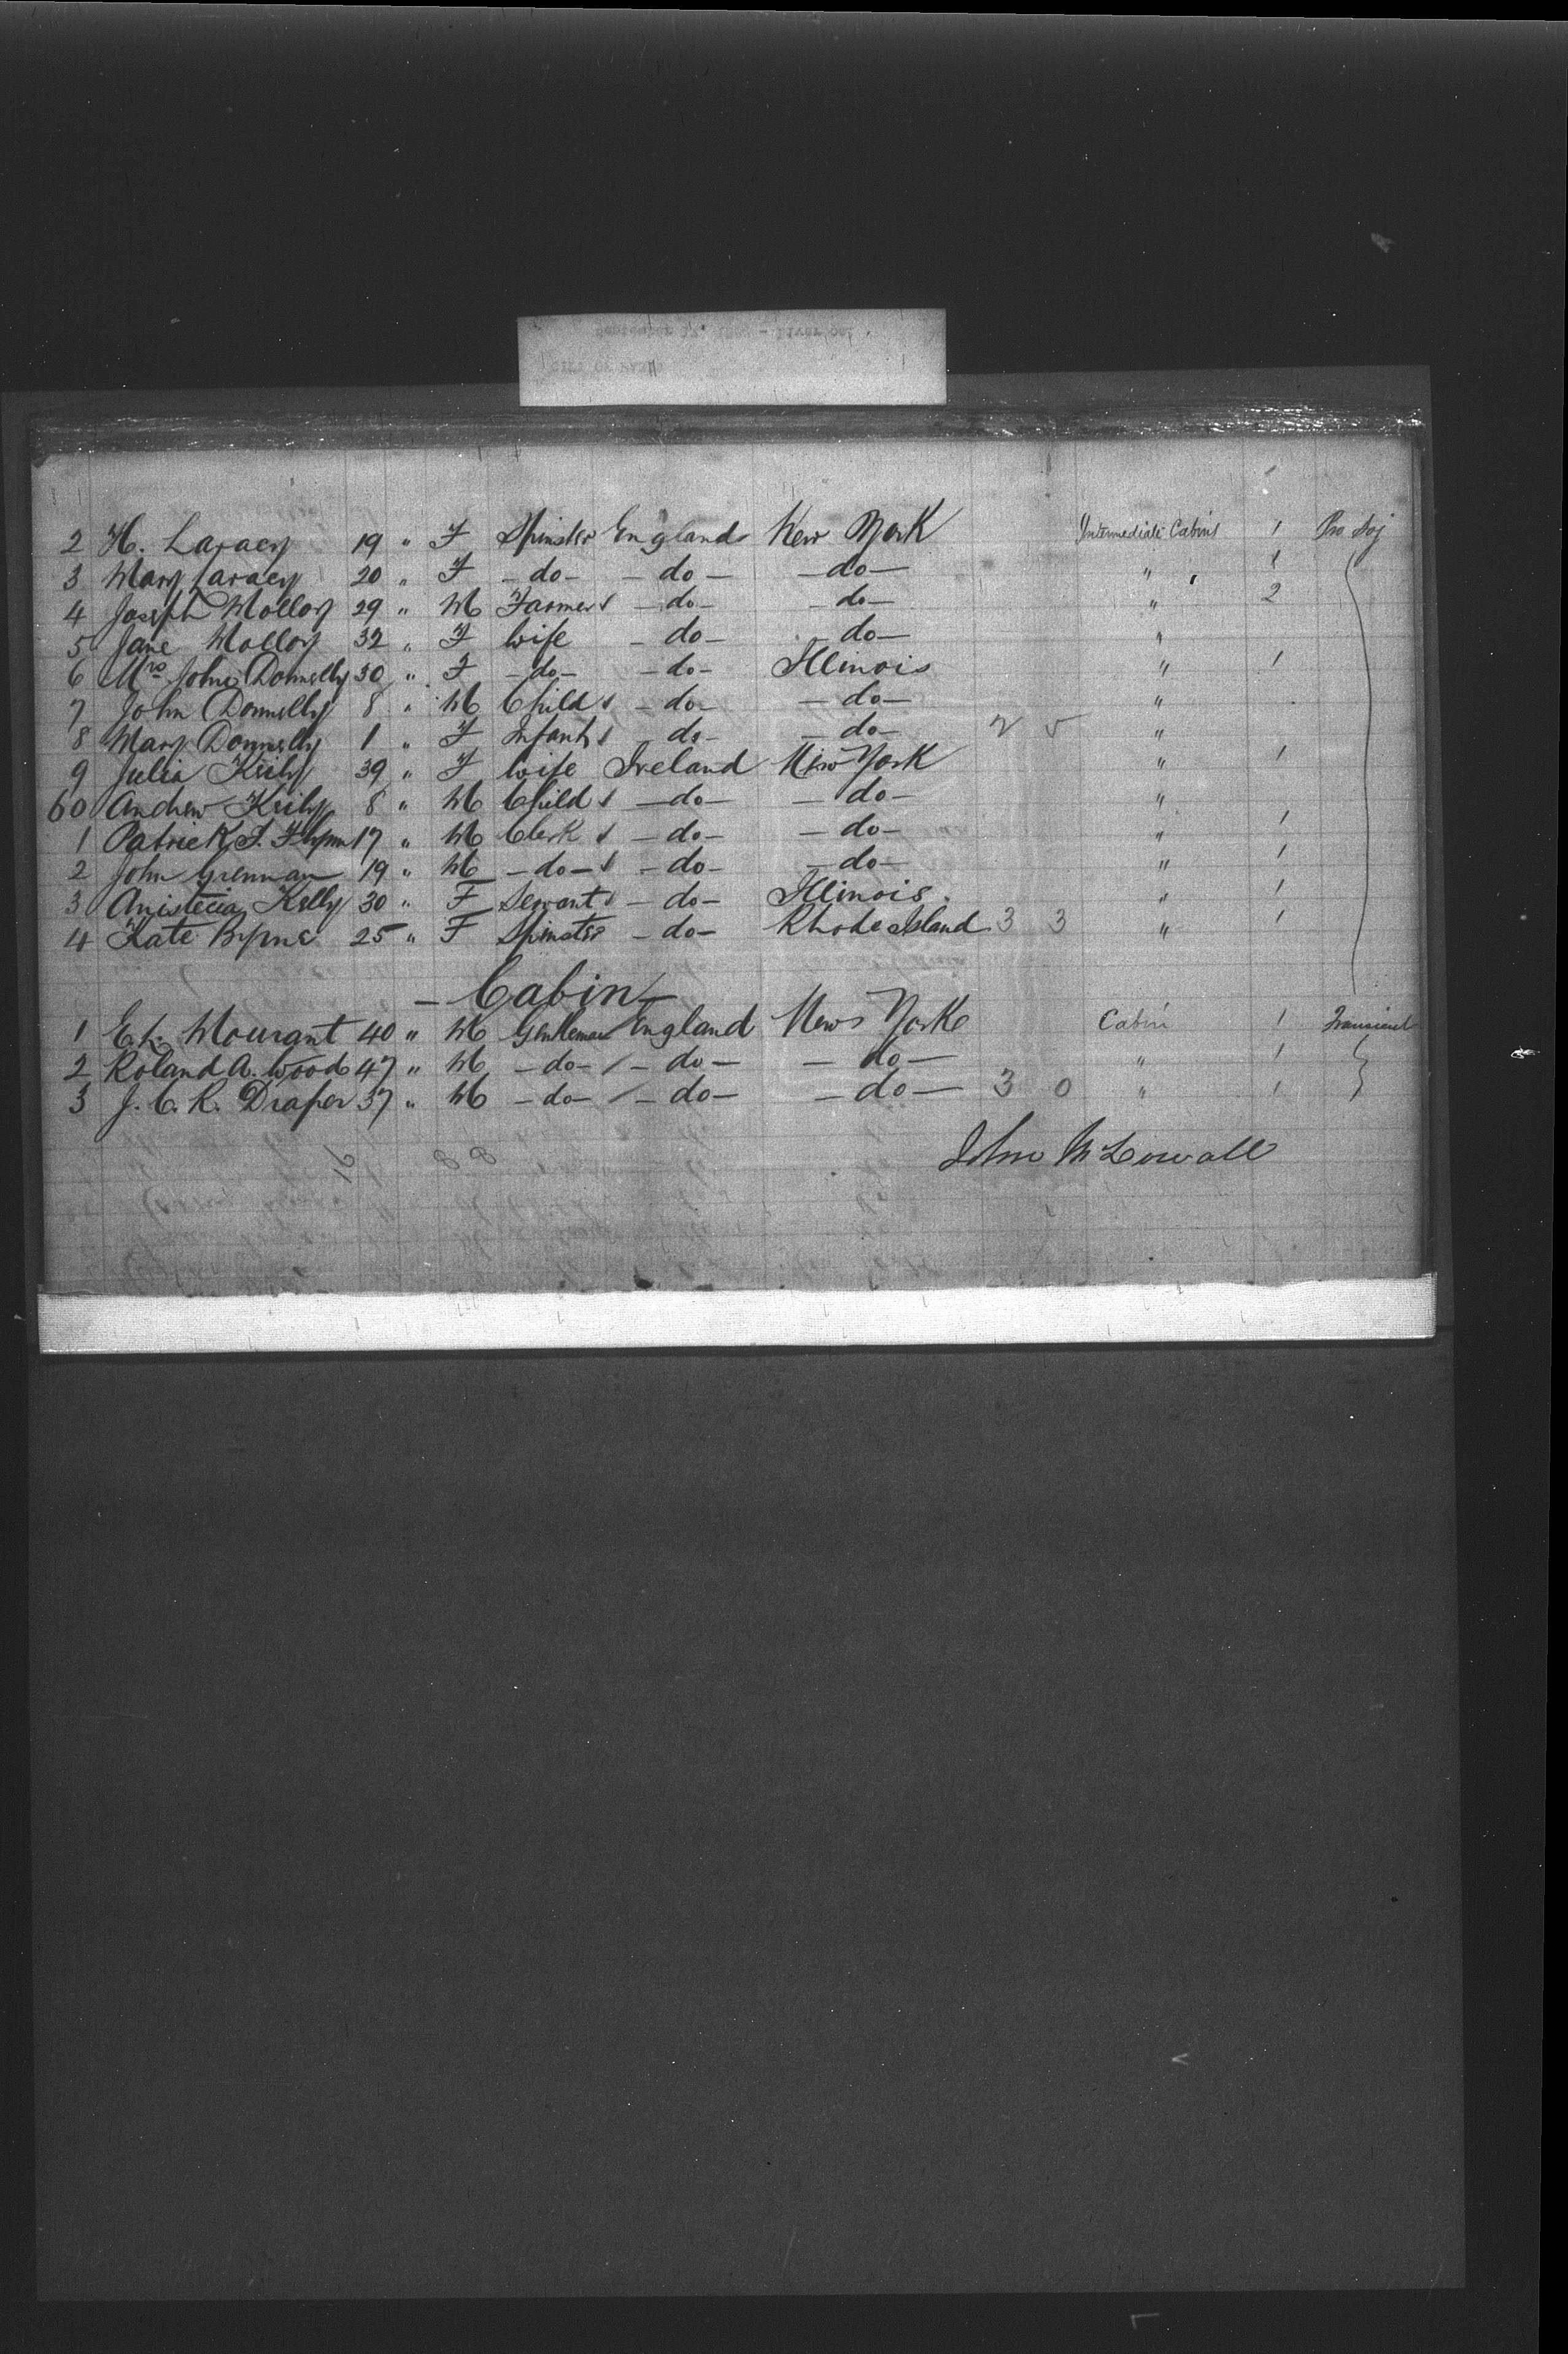 2 H. Laracy 19 " F Spinster England New York Intermediate Cabins 1 Pro Soj
3 Mary Laracy 20 " F -do- -do- -do- " 1
4 Joseph Molloy 29 " M Farmer -do- -do- " 2
5 Jane Molloy 32 " F wife -do- -do- "
6 Mrs John Donnelly 30 " F -do- -do- Illinois " 1
7 John Donnelly 8 " M Child -do- -do- "
8 Mary Donnelly 1 " F Infant -do- -do- 2 5 "
9 Julia Keily 39 " F wife Ireland New York " 1
60 Andrew Keily 8 " M Child -do- -do- "
1 Patrick J. Flynn 17 " M Clerk -do- -do- " 1
2 John Grennan 19 " M -do- -do- -do- " 1
3 Anistecia Kelly 30 " F Servant -do- Illinois " 1
4 Kate Byrne 25 " F Spinster -do- Rhode Island 3 3 " 1
- Cabin -
1 E. L. Mourant 40 " M Gentleman England New York Cabin 1 Transient
2 Roland A. Wood 47 " M -do- -do- -do- " 1
3 J. C. R. Draper 37 " M -do- -do- -do- 3 0 " 1
John McDowall